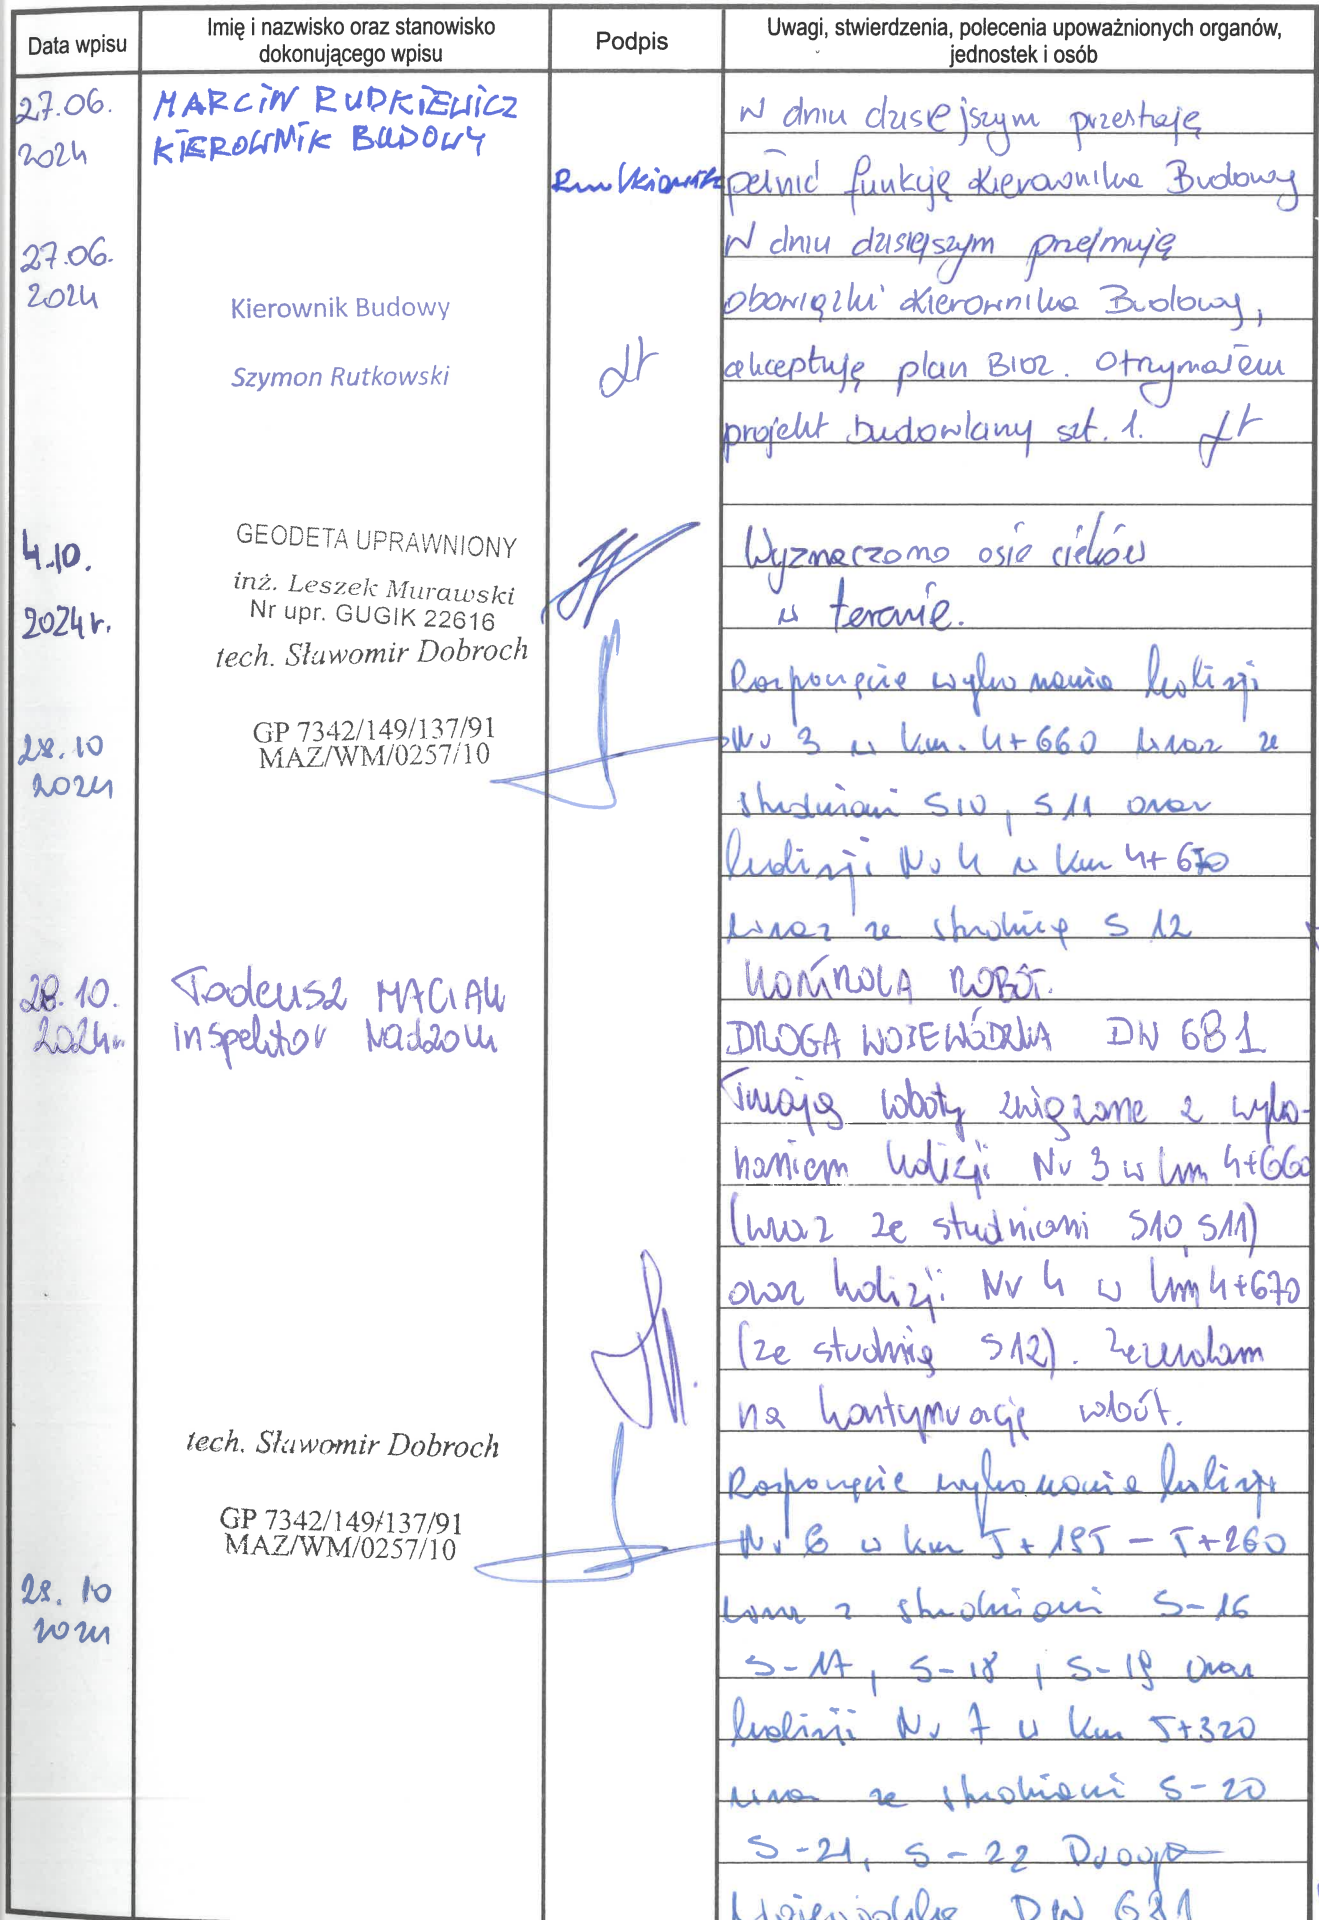 Data wpisu
Imię i nazwisko oraz stanowisko
dokonującego wpisu
Podpis
Uwagi, stwierdzenia, polecenia upoważnionych organów,
jednostek i osób
27.06.
2024
MARCIN RUDKIEWICZ
KIEROWNIK BUDOWY
W dniu dzisiejszym przestaję
pełnić funkcję Kierownika Budowy
27.06.
2024
Kierownik Budowy
Szymon Rutkowski
W dniu dzisiejszym przejmuję
obowiązki Kierownika Budowy,
akceptuję plan BIOZ. Otrzymałem
projekt budowlany szt. 1.
4.10.
2024r.
GEODETA UPRAWNIONY
inż. Leszek Murawski
Nr upr. GUGIK 22616
Wyznaczono osie cieków
w terenie.
28.10
2024
tech. Sławomir Dobroch
GP 7342/149/137/91
MAZ/WM/0257/10
Rozpoczęcie wykonania kolizji
Nr 3 w km. 4+660 wraz ze
studniami S10, S11 oraz
kolizji Nr 4 w km 4+670
wraz ze studnią S12
28.10.
2024r
Tadeusz MACIAK
inspektor nadzoru
KONTROLA ROBÓT.
DROGA WOJEWÓDZKA DW 681
Trwają roboty związane z wyko-
naniem kolizji Nr 3 w km 4+660
(wraz ze studniami S10, S11)
oraz kolizji Nr 4 w km 4+670
(ze studnią S12). Zezwalam
na kontynuację robót.
28.10
2024
tech. Sławomir Dobroch
GP 7342/149/137/91
MAZ/WM/0257/10
Rozpoczęcie wykonania kolizji
Nr 6 w km 5+195 - 5+260
wraz z studniami S-16
S-17, S-18, S-19 oraz
kolizji Nr 7 w km 5+320
wraz ze studniami S-20
S-21, S-22 Droga
Wojewódzka DW 681